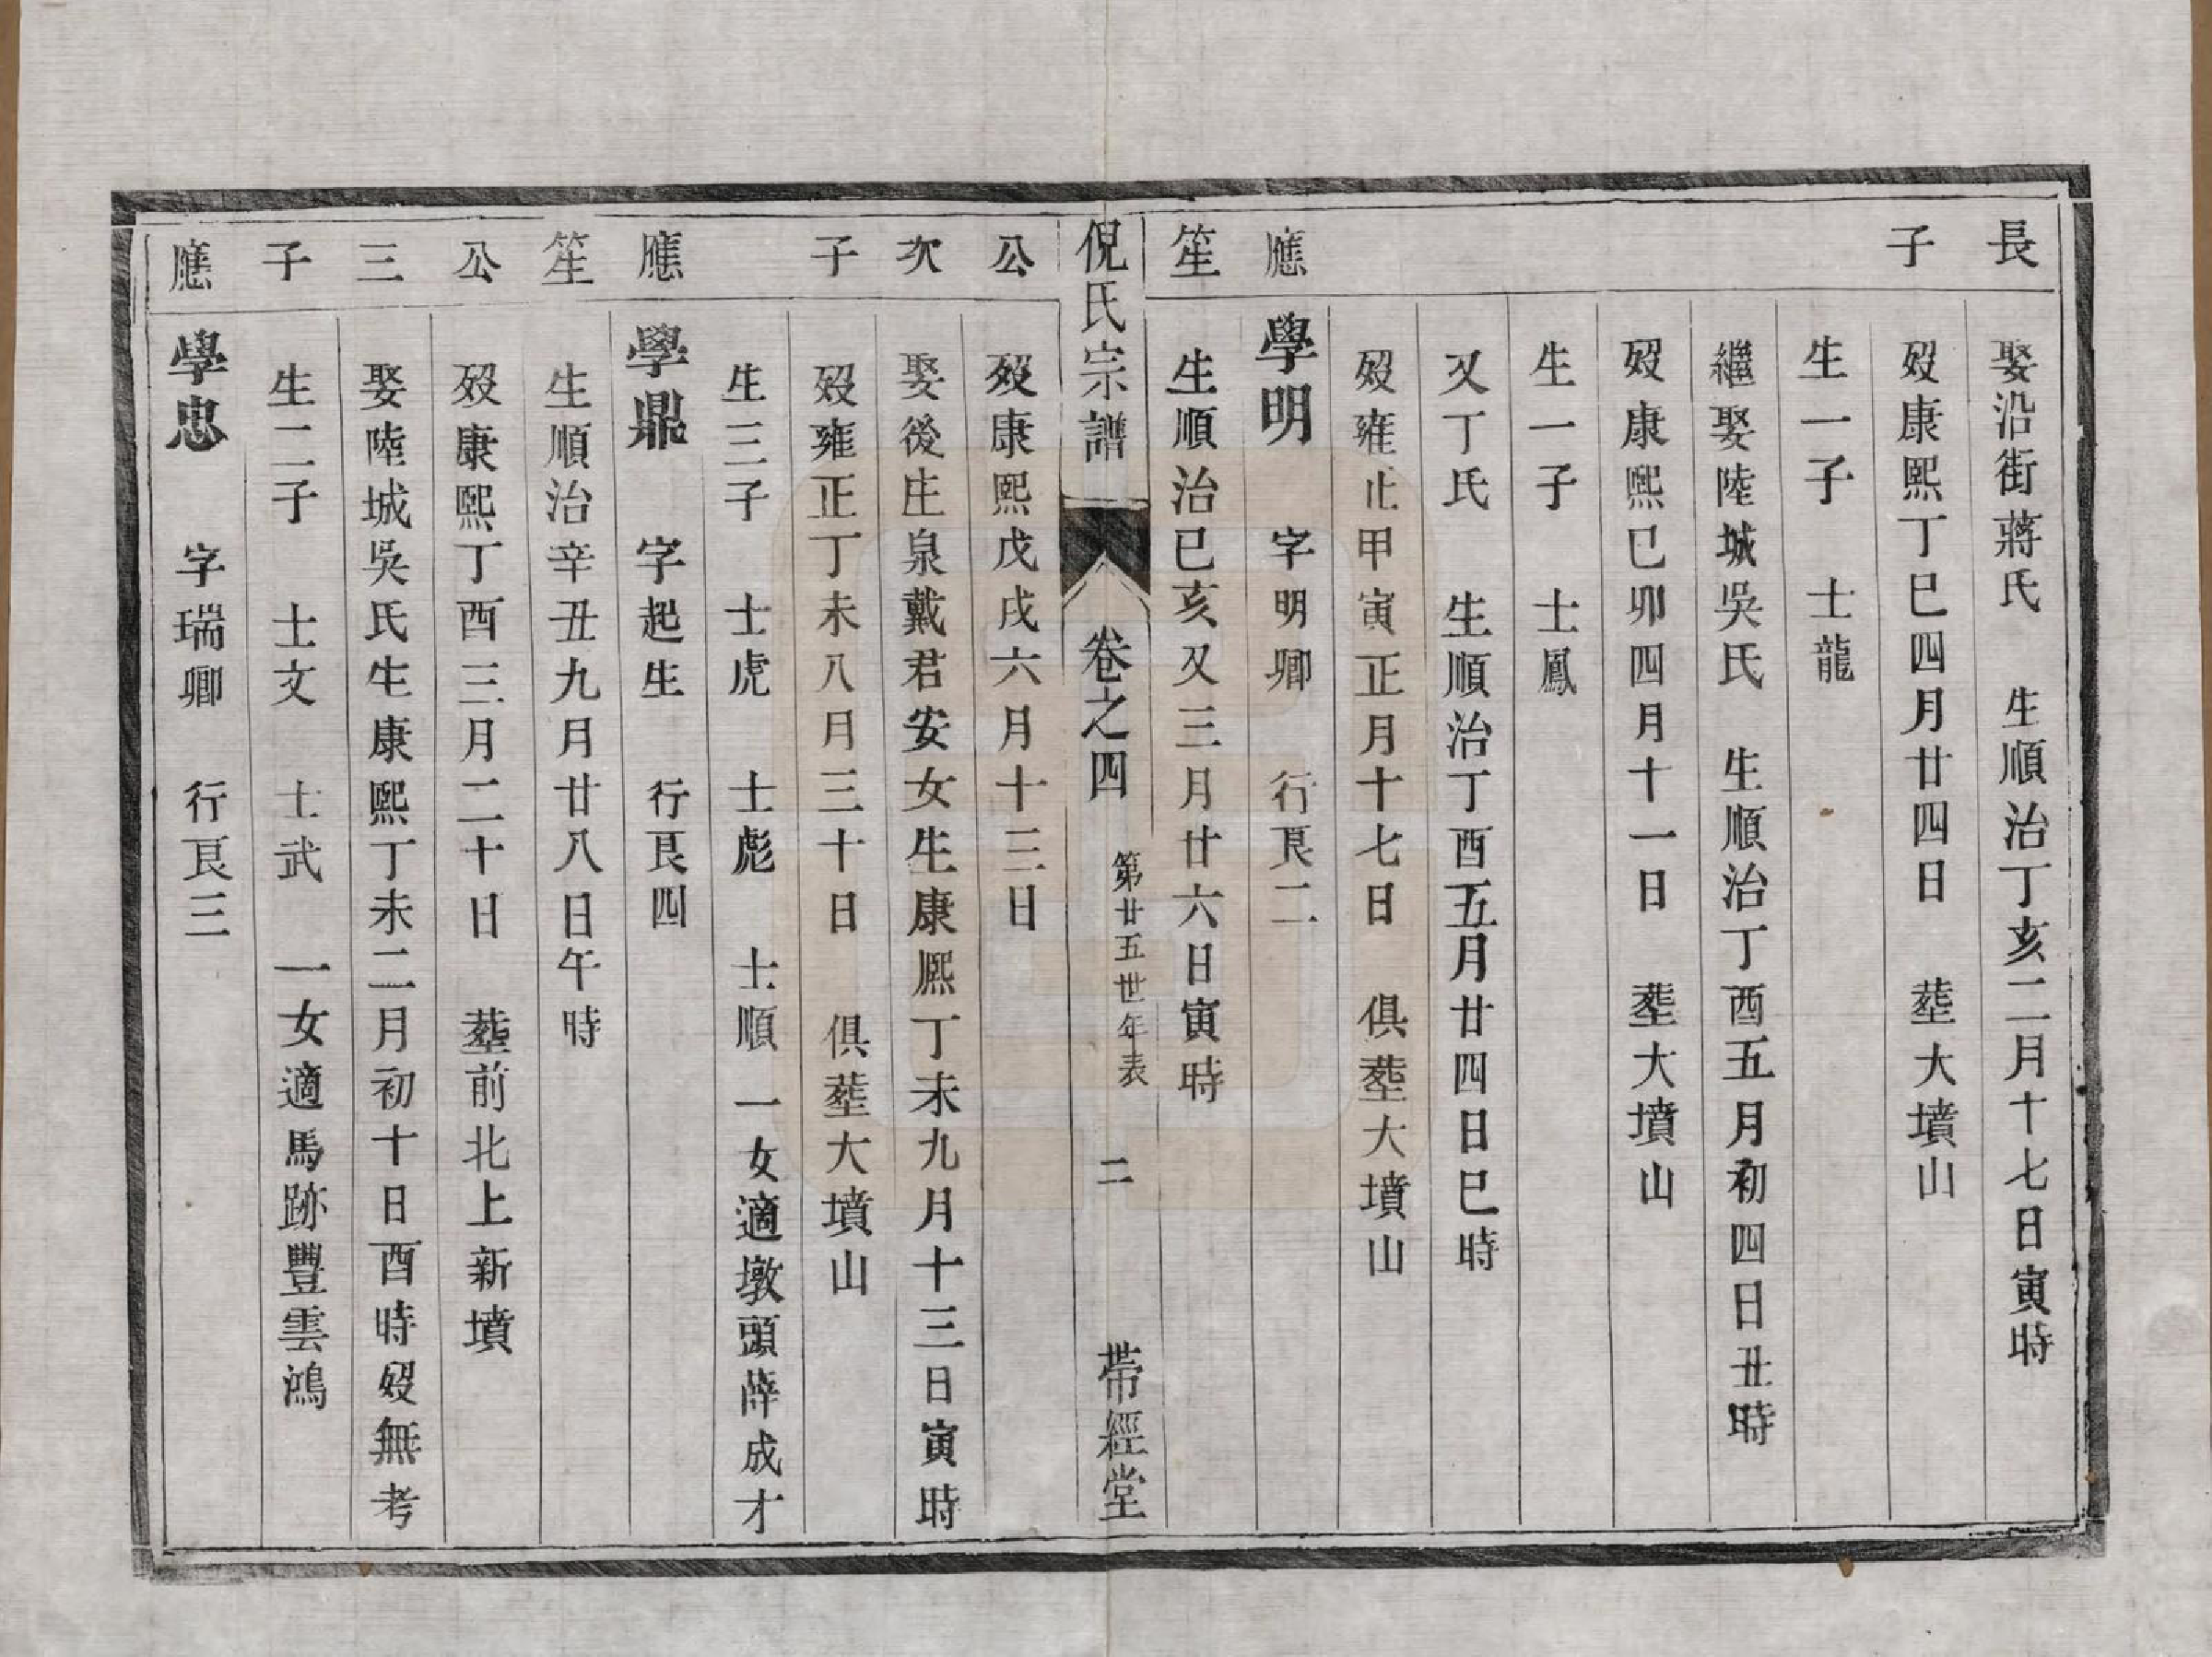 長
娶沿街蔣氏　生順治丁亥二月十七日寅時
子
歿康熙丁巳四月廿四日　塟大墳山
生一子　士龍
繼娶陸城吳氏　生順治丁酉五月初四日丑時
歿康熙己卯四月十一日　塟大墳山
生一子　士鳳
又丁氏　生順治丁酉五月廿四日巳時
歿雍正甲寅正月十七日　俱塟大墳山
應
學明　字明卿　行艮二
笙
生順治己亥又三月廿六日寅時
倪氏宗譜　卷之四　第廿五世年表　二　帶經堂
公
歿康熙戊戌六月十三日
次
娶後庄泉戴君安女生康熙丁未九月十三日寅時
子
歿雍正丁未八月三十日　俱塟大墳山
生三子　士虎　士彪　士順　一女適墩頭薛成才
應
學鼎　字起生　行艮四
笙
生順治辛丑九月廿八日午時
公
歿康熙丁酉三月二十日　塟前北上新墳
三
娶陸城吳氏生康熙丁未二月初十日酉時歿無考
子
生二子　士文　士武　一女適馬跡豐雲鴻
應
學忠　字瑞卿　行艮三